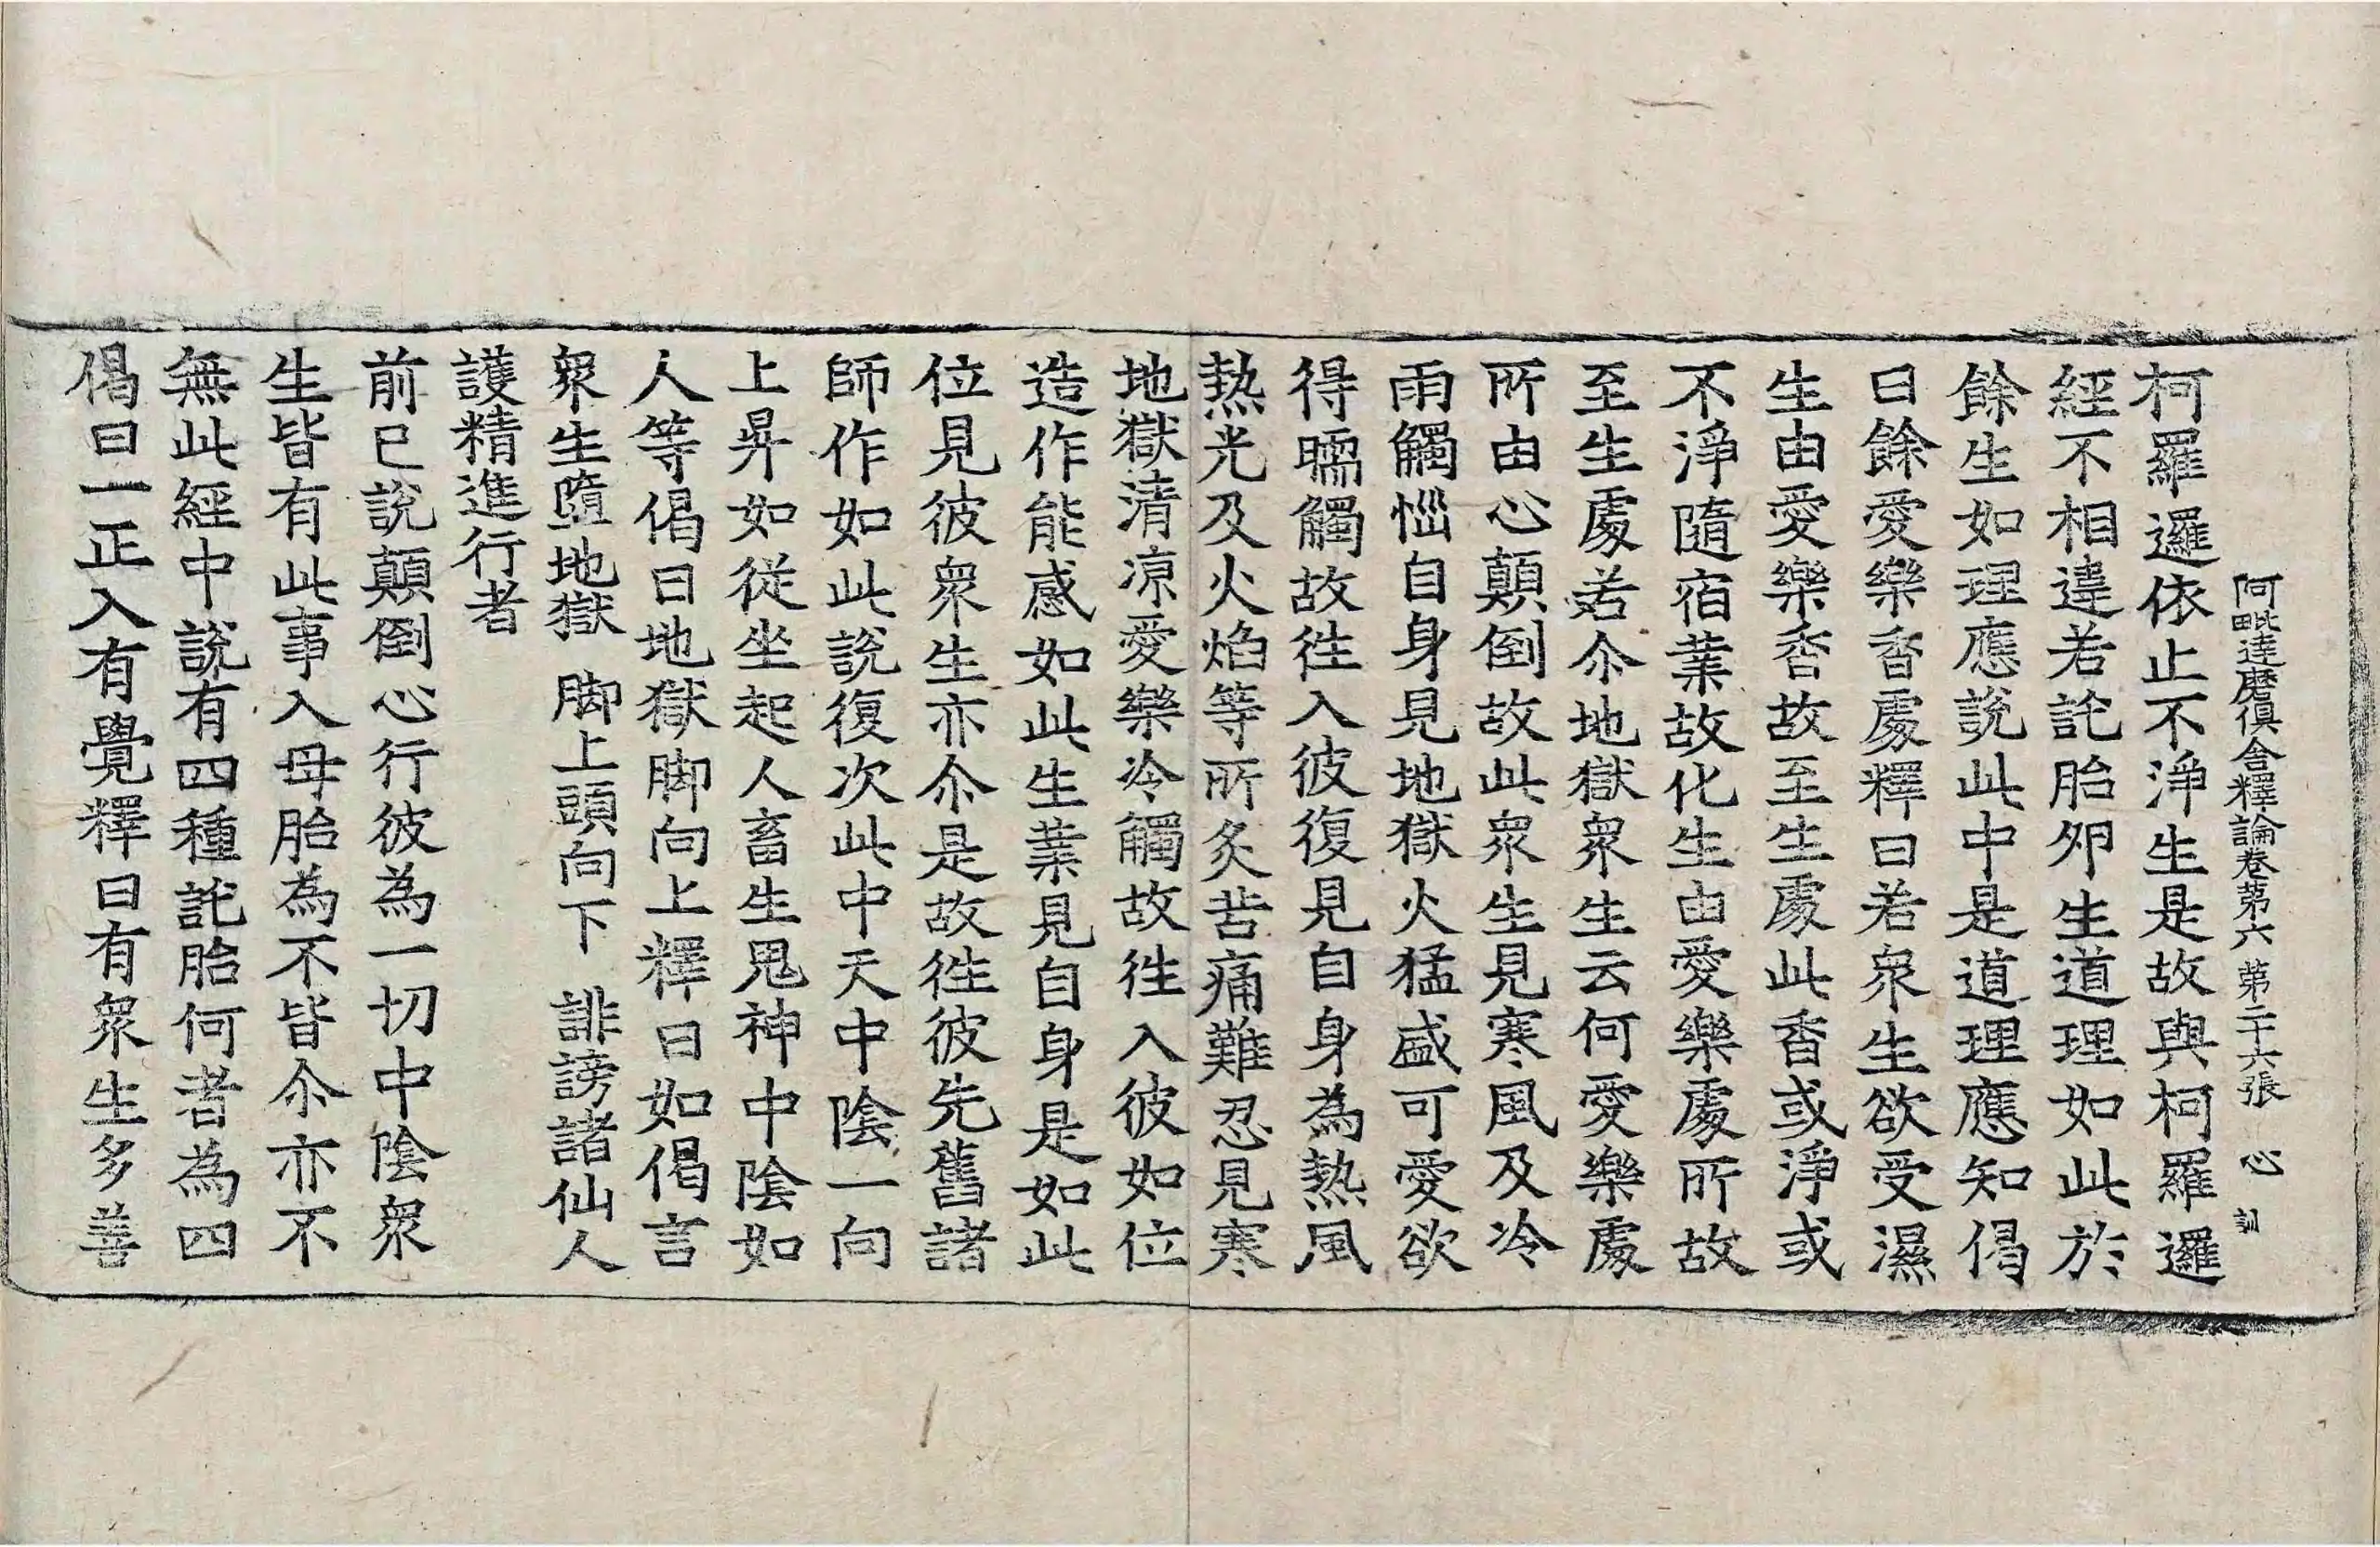 阿毗達磨俱舍釋論卷第六 第二十六張 心 訓
柯羅邏依止不淨生是故與柯羅邏
經不相違若託胎夘生道理如此於
餘生如理應說此中是道理應知偈
曰餘愛樂香處釋曰若衆生欲受濕
生由愛樂香故至生處此香或淨或
不淨隨宿業故化生由愛樂處所故
至生處若尒地獄衆生云何愛樂處
所由心顛倒故此衆生見寒風及冷
雨觸惱自身見地獄火猛盛可愛欲
得暖觸故徃入彼復見自身為熱風
熱光及火焰等所炙苦痛難忍見寒
地獄清凉愛樂冷觸故徃入彼如位
造作能感如此生業見自身是如此
位見彼衆生亦尒是故徃彼先舊諸
師作如此說復次此中天中陰一向
上昇如從坐起人畜生鬼神中陰如
人等偈曰地獄脚向上釋曰如偈言
衆生墮地獄 脚上頭向下 誹謗諸仙人
護精進行者
前已說顛倒心行彼為一切中陰衆
生皆有此事入母胎為不皆尒亦不
無此經中說有四種託胎何者為四
偈曰一正入有覺釋曰有衆生多善